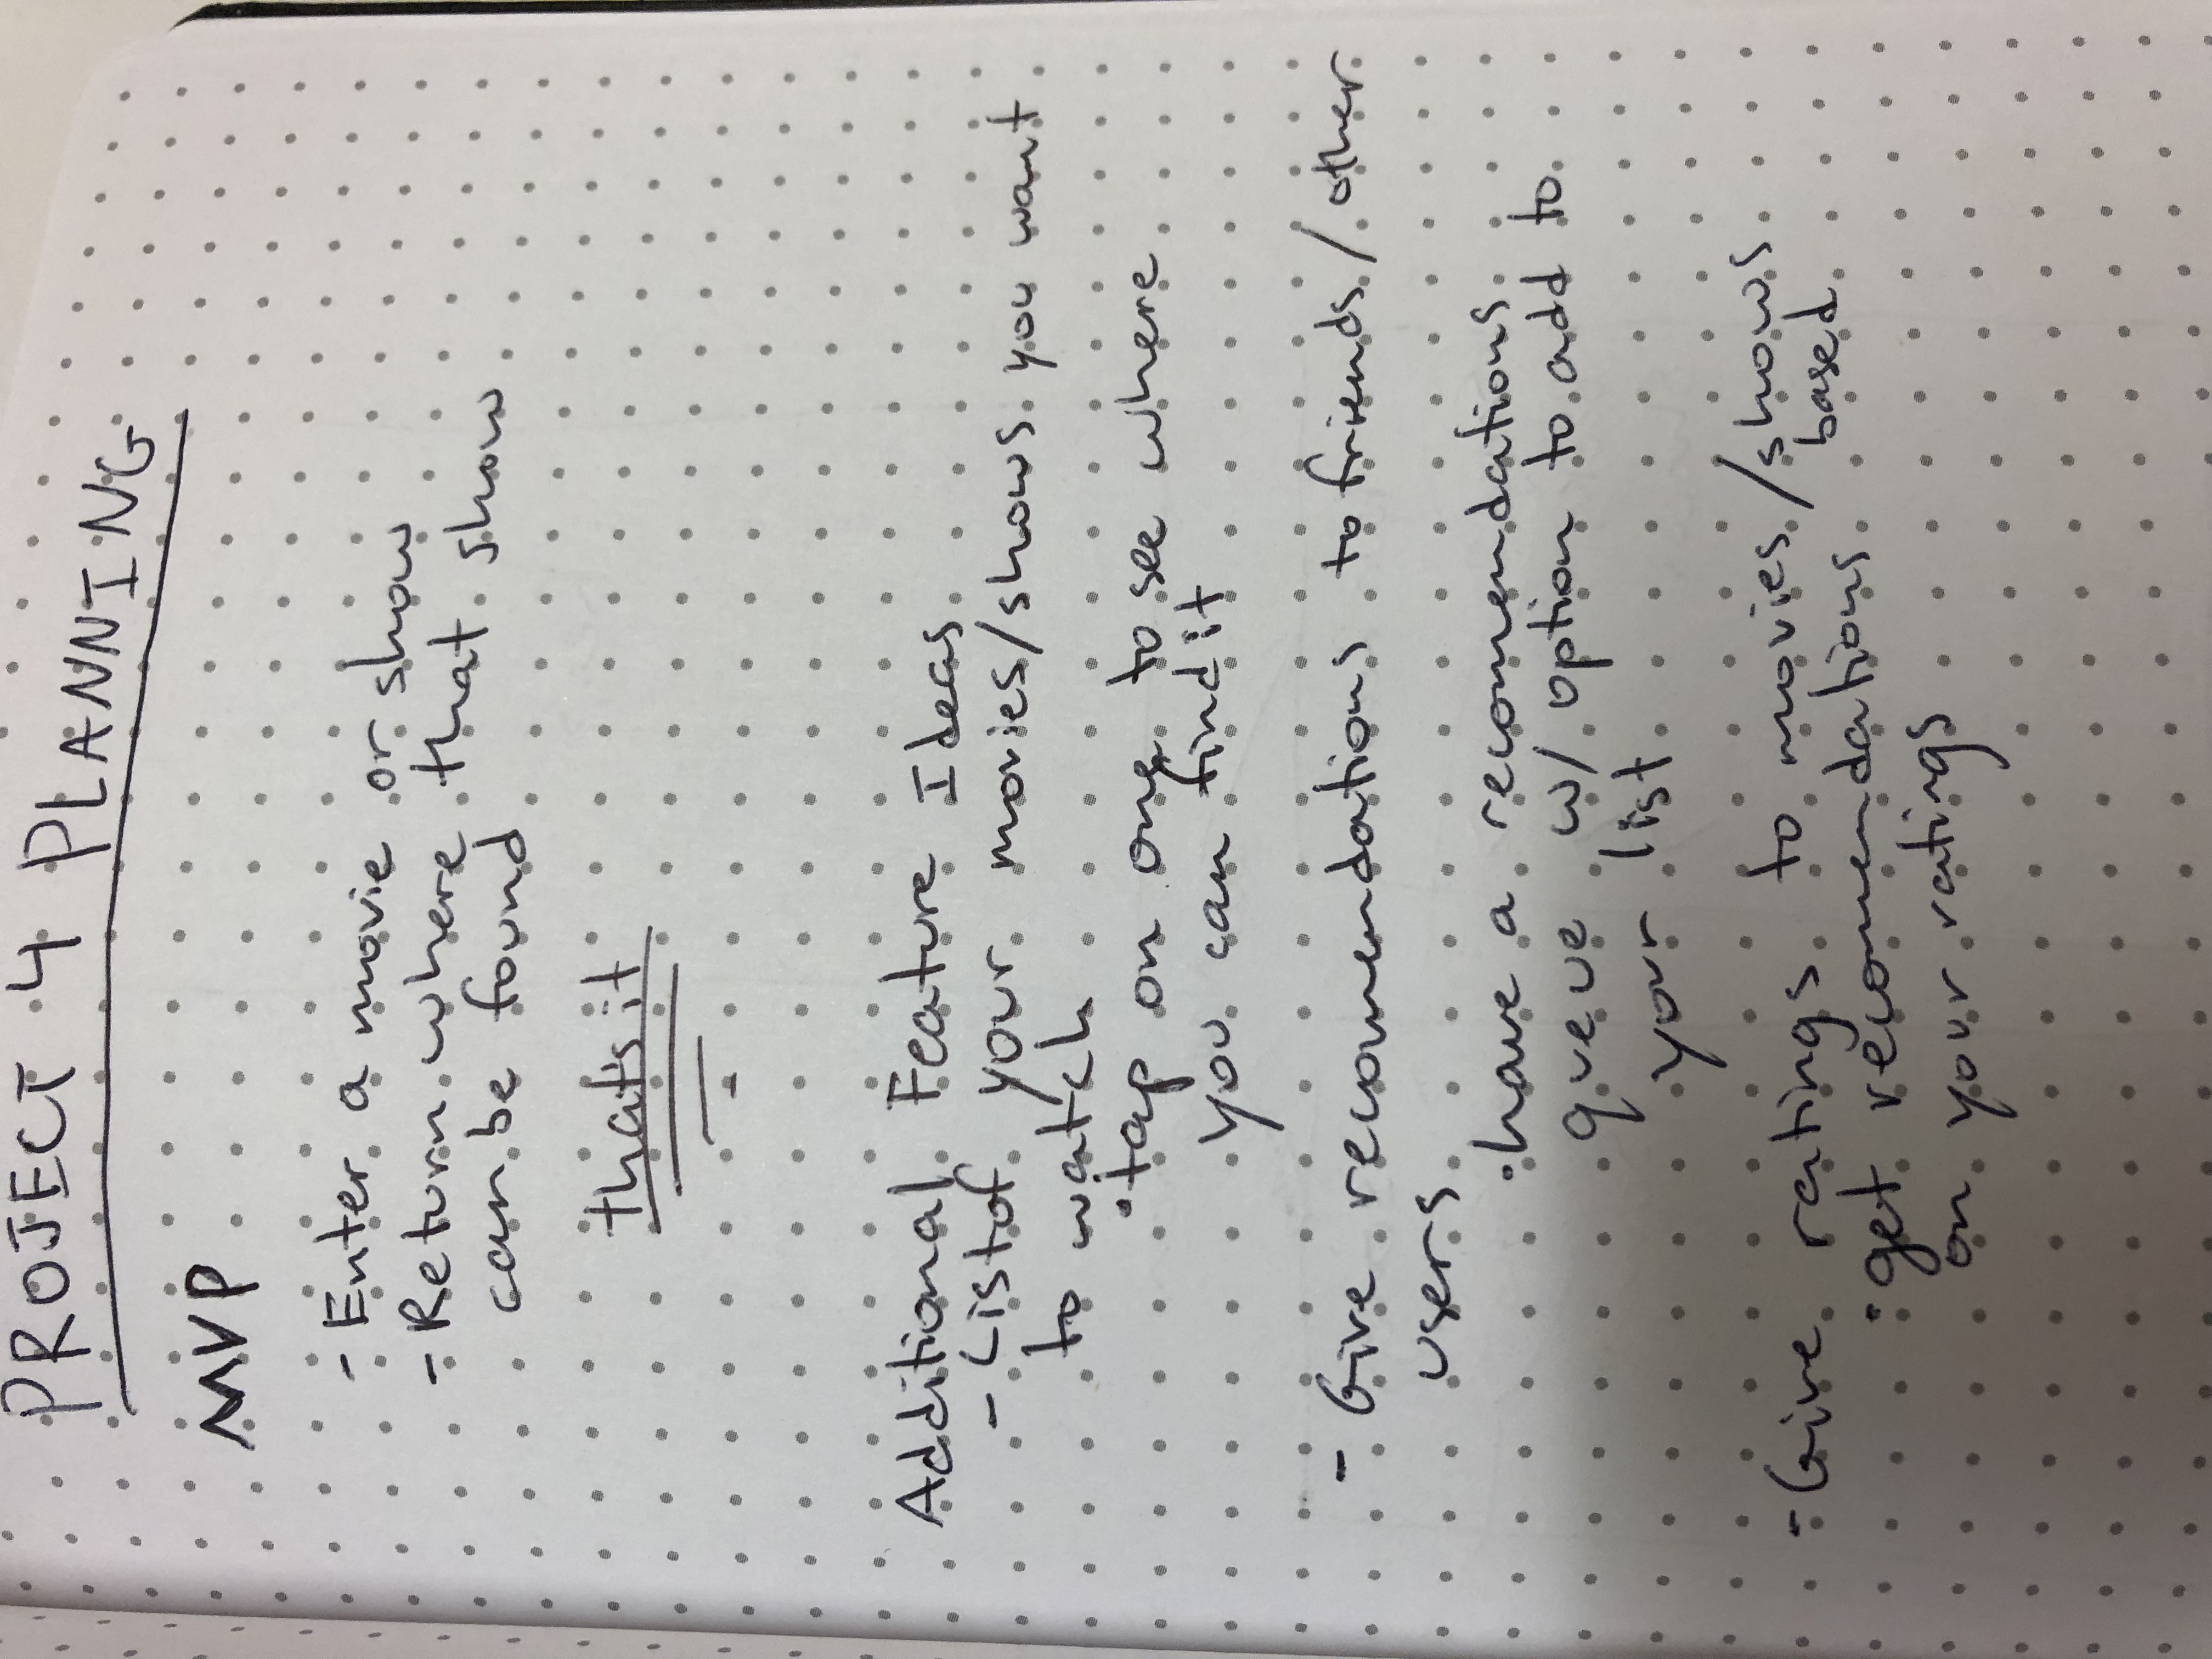 PROJECT 4 PLANNING
MVP
- Enter a movie or show
- Return where that show
can be found
that's it
Additional Feature Ideas
- List of your movies/shows you want
to watch
• tap on one to see where
you can find it
- Give recomendations to friends/other
users
• have a recomendations
queue w/ option to add to
your list
- Give ratings to movies/shows
• get recomendations based
on your ratings